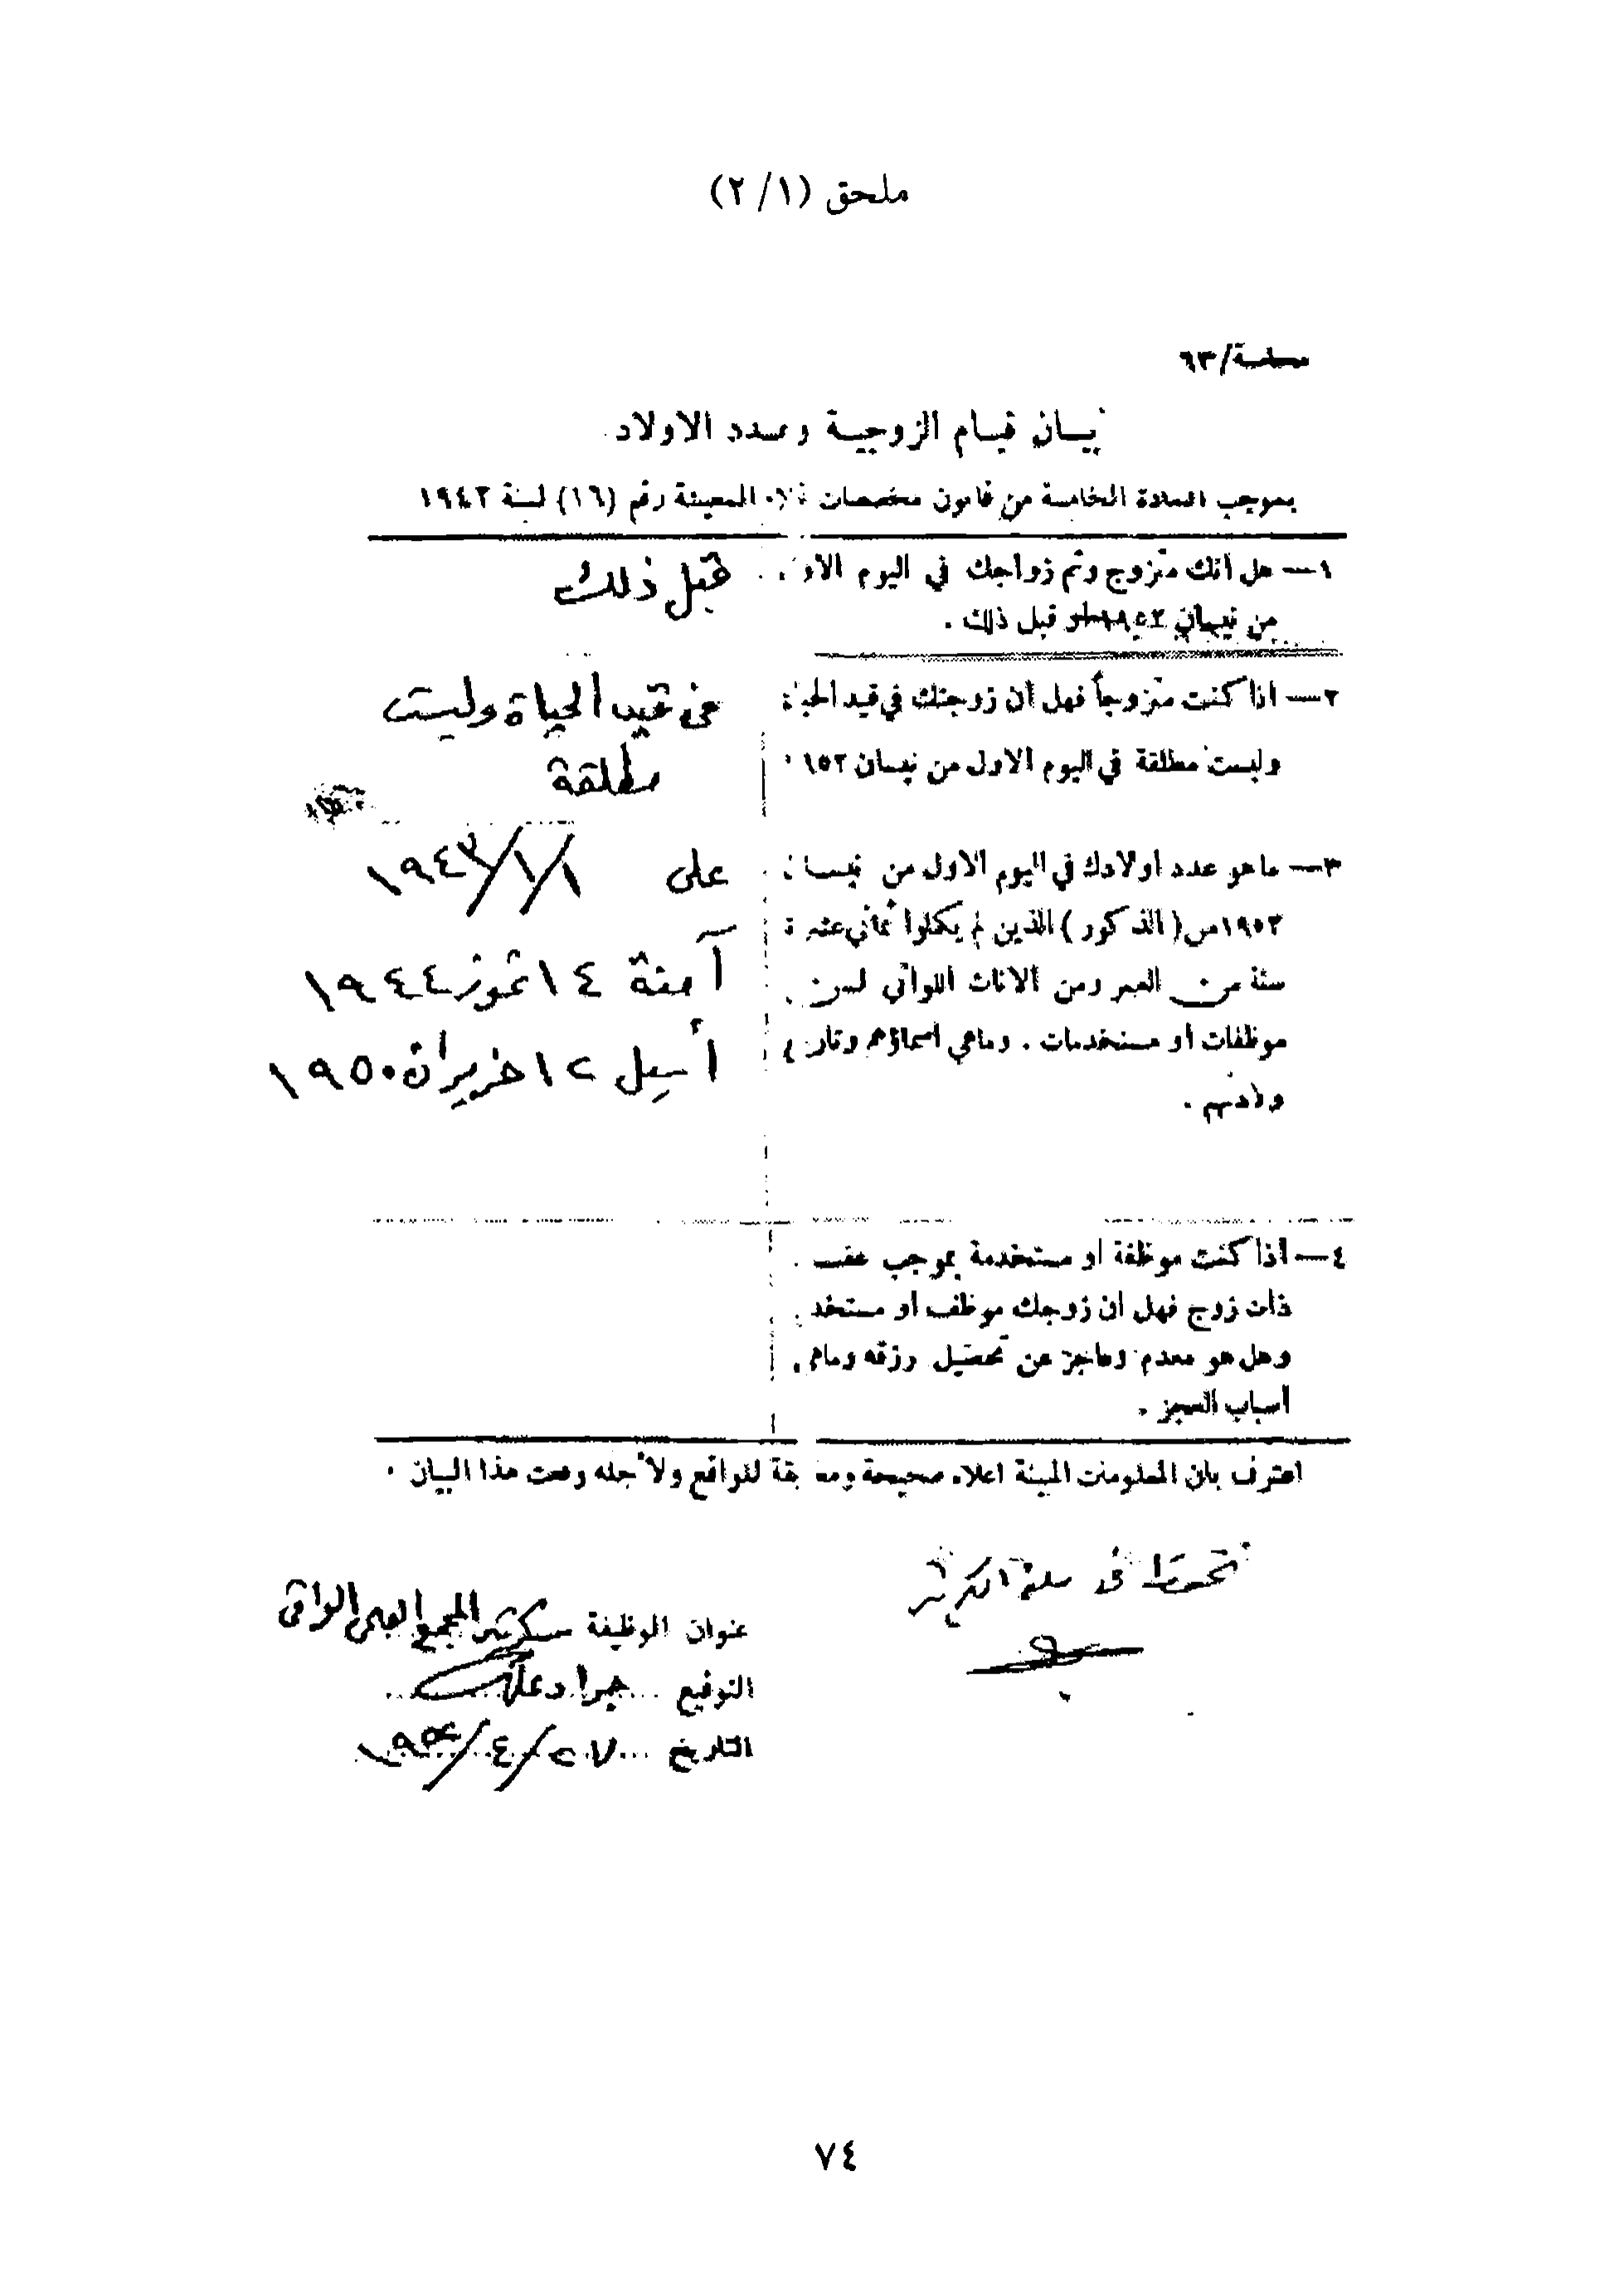 ملحق (٢/١)
٦٣/
بيان قيام الزوجية وعدد الاولاد
بموجب المادة الخامسة من قانون مخصصات غلاء المعيشة رقم (١٦) لسنة ١٩٤٢
١— هل أنك متزوج وتم زواجك في اليوم الاول
من نيسان ١٩٥٢ او قبل ذلك .
قبل ذلك
٢— اذا كنت متزوجاً فهل ان زوجتك في قيد الحياة
وليست مطلقة في اليوم الاول من نيسان
في قيد الحياة وليست
مطلقة
٣— ما هو عدد اولادك في اليوم الاول من نيسان
١٩٥٢ من (الذكور) الذين لم يكملوا ثماني عشرة
سنة من العمر ومن الاناث اللواتي لسن
موظفات أو مستخدمات . وماهي اسماؤهم وتاريخ
ولادتهم .
على ١٩٤٣/١/١
آمنة ١٤ تموز ١٩٤٤
أسيل ١٢ حزيران ١٩٥٠
٤— اذا كنت موظفة او مستخدمة بموجب عقد
ذات زوج فهل ان زوجك موظف او مستخدم
وهل هو معدم وعاجز عن تحصيل رزقه وماهي
اسباب العجز .
اعترف بان المعلومات المبينة اعلاه صحيحة ومطابقة للواقع ولأجله وقعت هذا البيان .
تحفظ في
عنوان الوظيفة سكرتير المجمع العلمي العراقي
التوقيع جواد علي
التاريخ ٢٧/٤/
٧٤